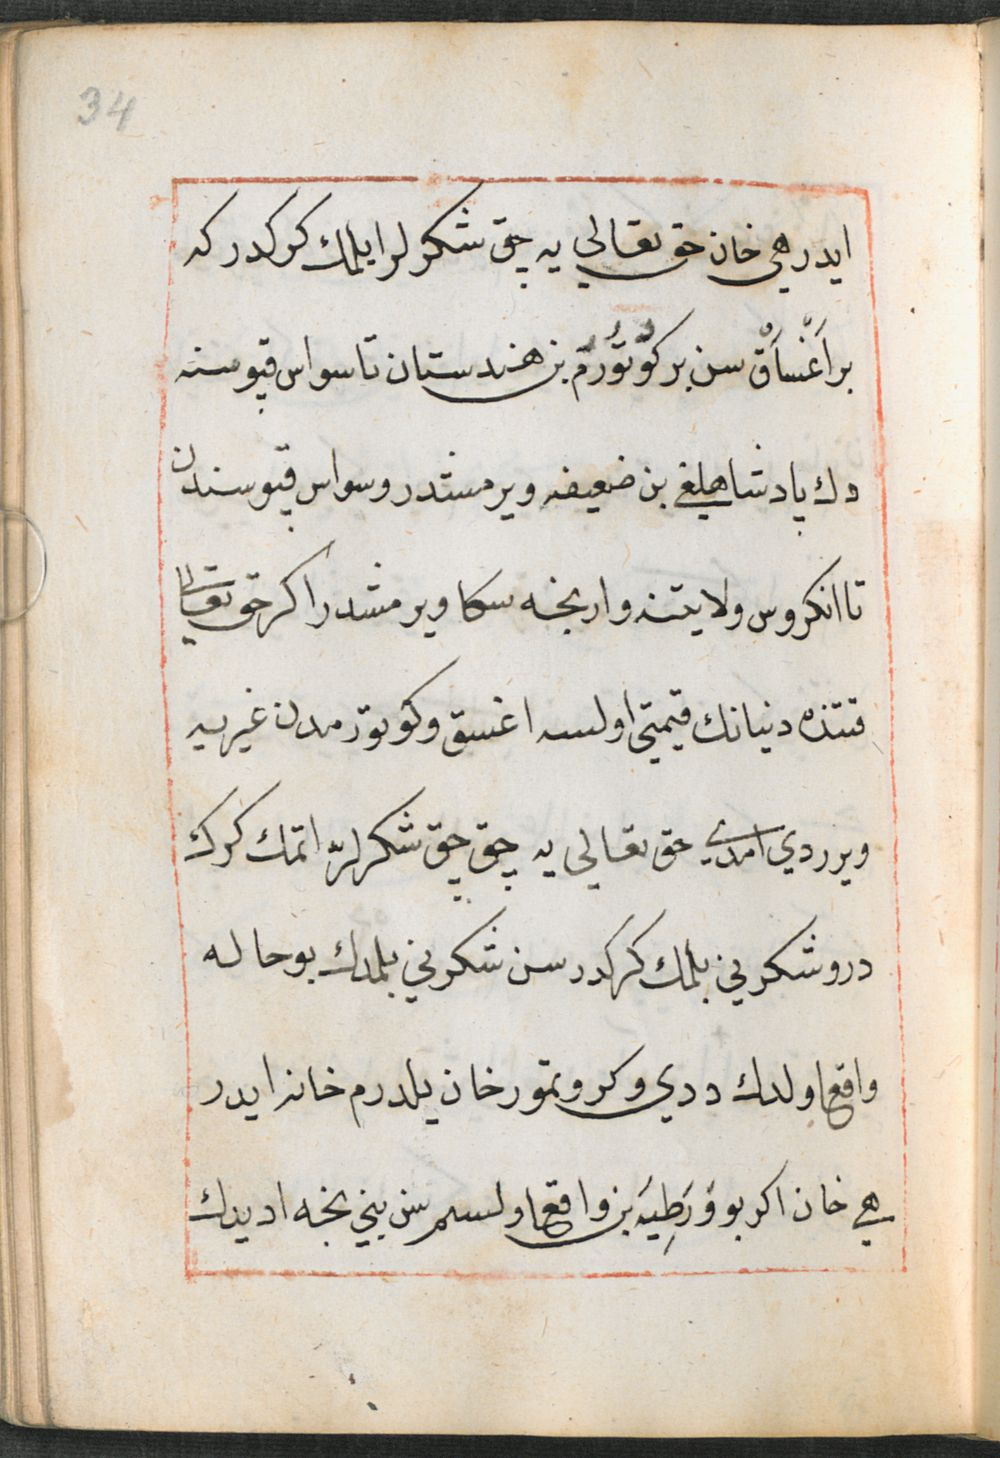 34
ايدر هي خان حق تعالي يه چق شكرلر ايلمك كركدر كه
بر اَغْساَقْ سن بر كوُتوُرُم بن هندستان تا سواس قپوسنه
دك پادشاهلغي بن ضعيفه ويرمشدر وسواس قپوسندن
تا انكروس ولايتنه وارنجه سكا ويرمشدر اكر حق تعالى
قتنده دنيانك قيمتي اولسه اغسق وكوتورمدن غيريه
ويرردي امدي حق تعالي يه چق چق شكرلر اتمك كرك
در وشكرني بلمك كركدر سن شكرني بلمدك بو حاله
واقع اولدك ددي وكرو تمور خان يلدرم خانه ايدر
هي خان اكر بو وَرَطِيَه بن واقع اولسم سن بني نجه ادیدك